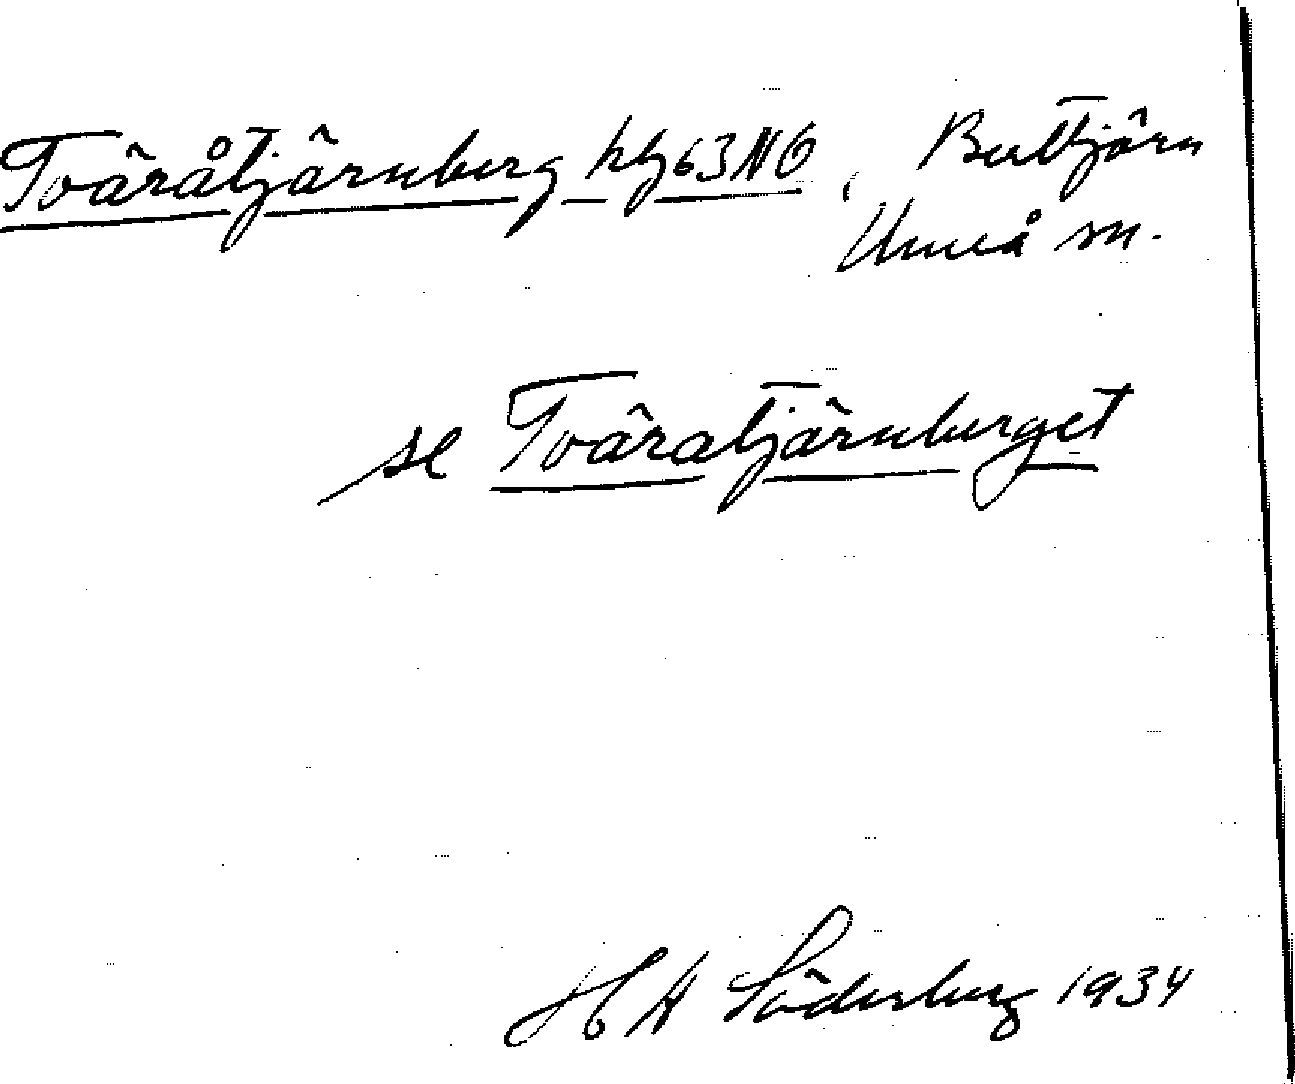 Tväråtjärnberg hg 63 NO, Bultjärn
Umeå sn.
se Tväratjärnberget
H A Söderberg 1934